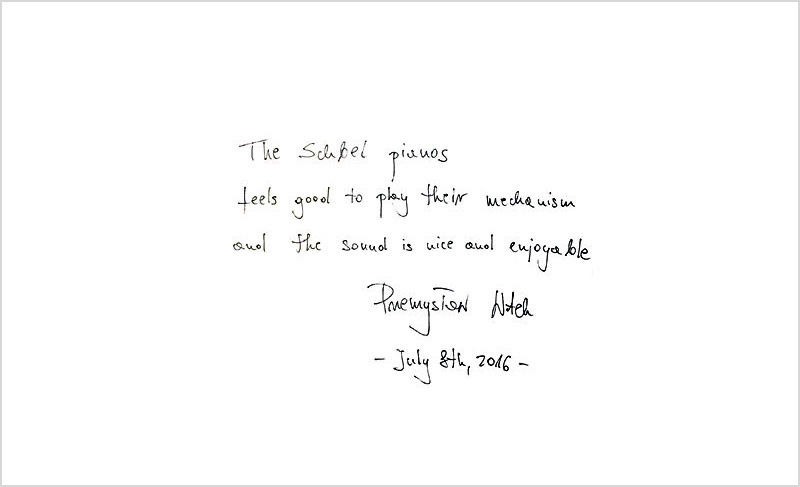 The Schbel pianos
feels good to play their mechanism
and the sound is nice and enjoyable
Przemysław
- July 8th, 2016 -